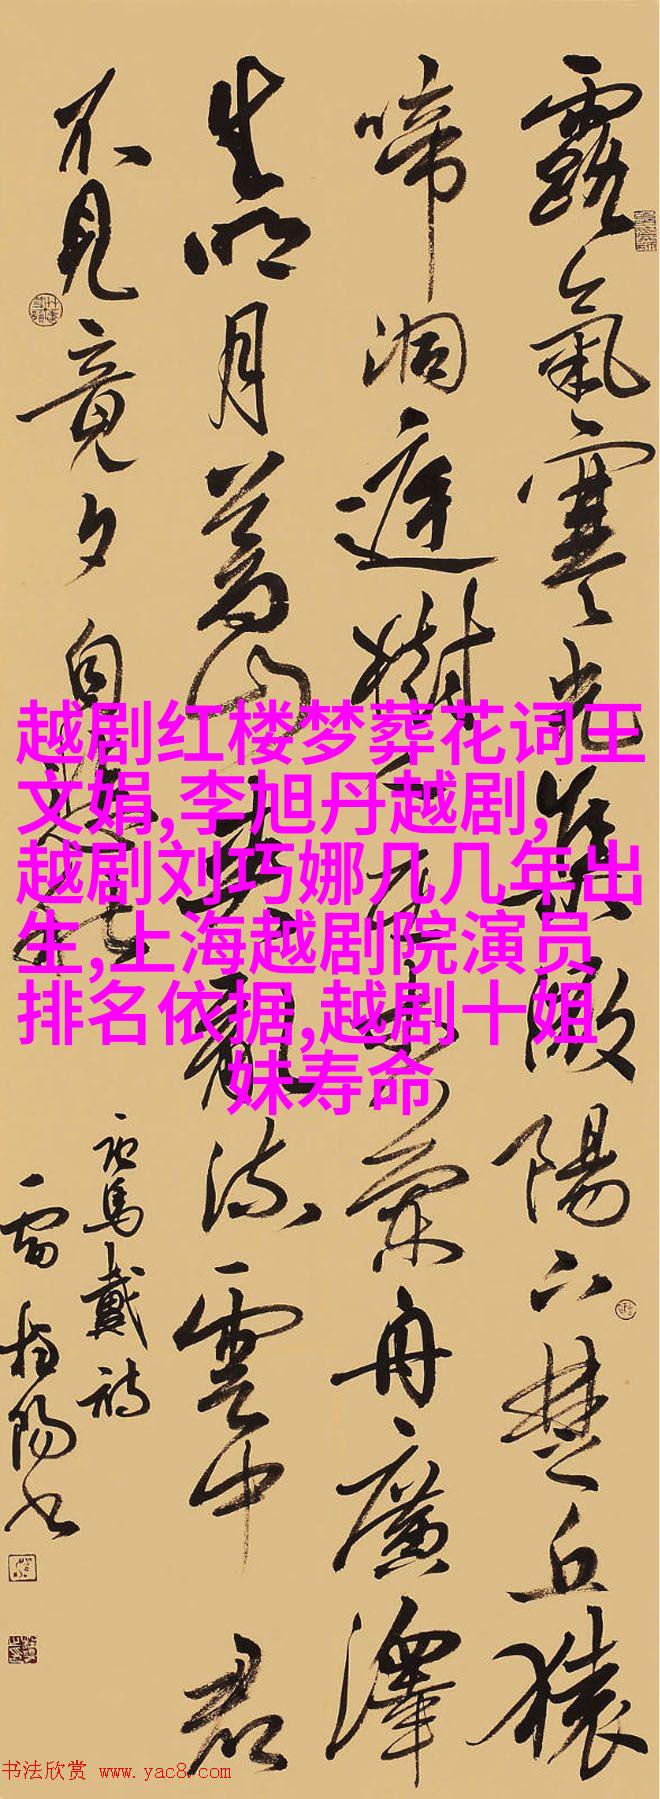 露氣寒光集微陽下楚丘猿
啼洞庭樹人在木蘭舟廣澤
生明月蒼山夾亂流雲中君
不見竟夕自悲秋
唐馬戴詩
雷陽书
越剧红楼梦葬花词王
文娟,李旭丹越剧,
越剧刘巧娜几几年出
生,上海越剧院演员
排名依据,越剧十姐
妹寿命
书法欣赏 www.yac8.com